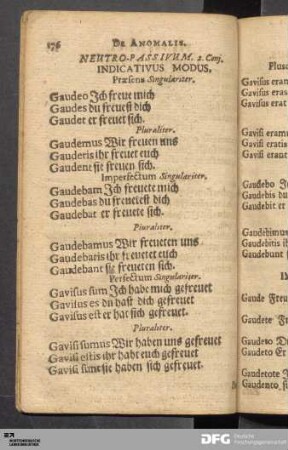 176 DE ANOMALIS.
NEUTRO-PASSIVUM. 2. Conj.
INDICATIVUS MODUS,
Præsens Singulariter.
Gaudeo Jch freue mich
Gaudes du freuest dich
Gaudet er freuet sich.
Pluraliter.
Gaudemus Wir freuen uns
Gauderis ihr freuet euch
Gaudent sie freuen sich.
Imperfectum Singulariter,
Gaudebam Jch freuete mich
Gaudebas du freuetest dich
Gaudebat er freuete sich.
Pluraliter.
Gaudebamus Wir freueten uns
Gaudebatis ihr freuetet euch
Gaudebant sie freueten sich.
Perfectum Singulariter.
Gavisus sum Jch habe mich gefreuet
Gavisus es du hast dich gefreuet
Gavisus est er hat sich gefreuet.
Pluraliter.
Gavisi sumus Wir haben uns gefreuet
Gavisi estis ihr habt euch gefreuet
Gavisi sunt sie haben sich gefreuet.
Plur
Gavisi eram
Gavisi eratis
Gavisi erant
Gaudebo J
Gaudebis du
Gaudebit er
Gaudebimus
Gaudebitis ih
Gaudebunt
Gaude Freu
Gaudete F
Gaudeto D
Gaudeto Er
Gaudetote J
Gaudento, s
DFG Deutsche
Forschungsgemeinschaft